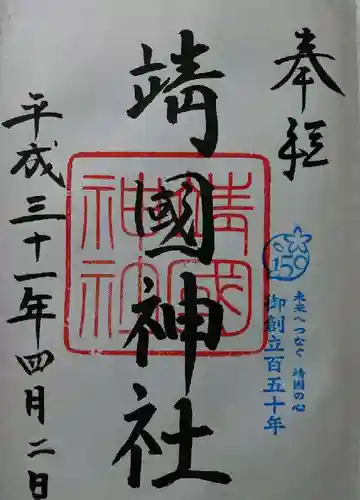 奉拝
靖國神社
靖國
神社
150
未来へつなぐ 靖国の心
御創立百五十年
平成三十一年四月二日